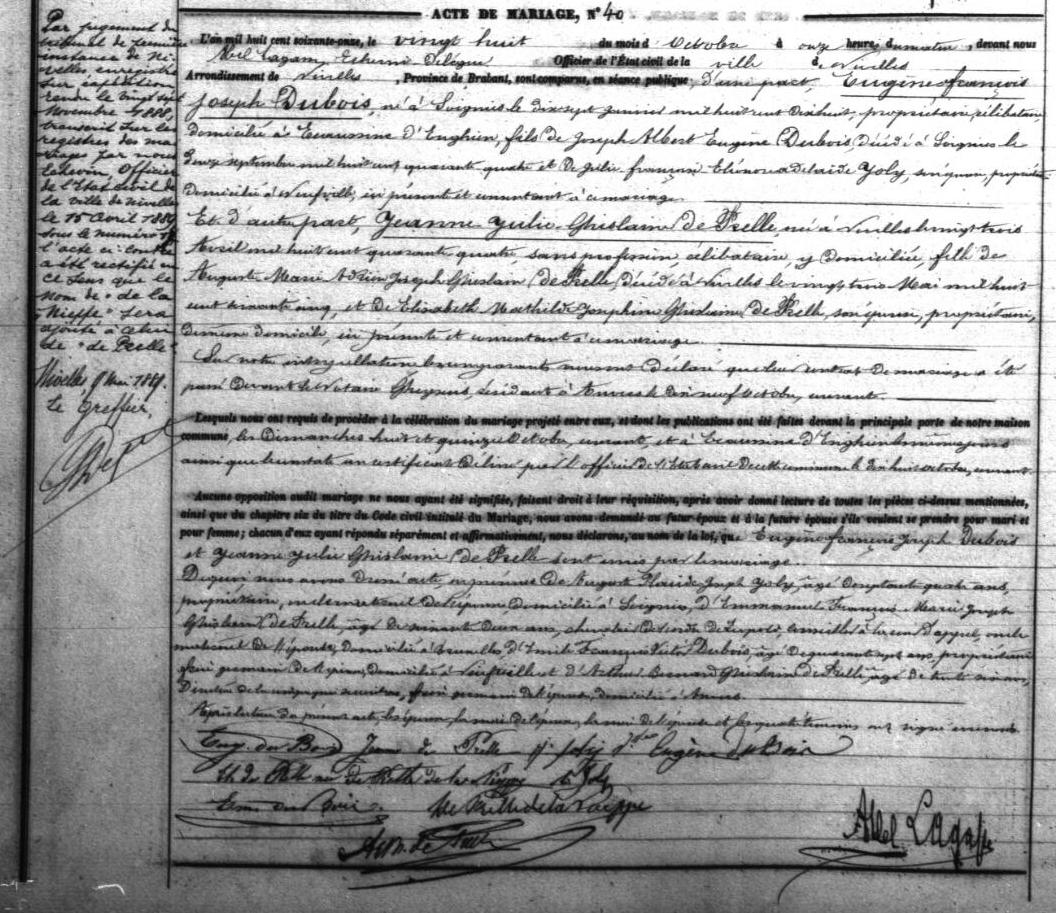 ACTE DE MARIAGE, N° 40
L'an mil huit cent soixante-onze, le vingt huit du mois d'Octobre à onze heures du matin, devant nous
Abel Lagasse, Echevin Délégué Officier de l'État civil de la ville de Nivelles
Arrondissement de Nivelles, Province de Brabant, sont comparus, en séance publique, d'une part, Eugène François
Joseph Dubois, né à Soignies le dix sept janvier mil huit cent dix huit, propriétaire, célibataire,
domicilié à Ecaussinne d'Enghien, fils de Joseph Albert Eugène Dubois, décédé à Soignies le
onze septembre mil huit cent quarante quatre et de Julie Françoise Eléonore Adelaïde Joly, son épouse, propriétaire
domiciliée à Neufville, ici présente et consentant à ce mariage.
Et d'autre part, Jeanne Julie Ghislaine de Prelle, née à Nivelles le vingt trois
Avril mil huit cent quarante quatre, sans profession, célibataire, y domiciliée, fille de
Auguste Marie Adrien Joseph Ghislain de Prelle, décédé à Nivelles le vingt trois Mai mil huit
cent soixante cinq, et de Elisabeth Mathilde Josephine Ghislaine de Prelle, son épouse, propriétaire,
même domicile, ici présente et consentant à ce mariage.
Sur notre interpellation les comparants nous ont déclaré que leur contrat de mariage a été
passé devant le Notaire résidant à le dix neuf Octobre, courant.
Lesquels nous ont requis de procéder à la célébration du mariage projeté entre eux, et dont les publications ont été faites devant la principale porte de notre maison
commune, les Dimanches huit et quinze Octobre, courant et à Ecaussinne d'Enghien les mêmes jours
ainsi que le constate un certificat délivré par l'officier de l'Etat civil de cette commune le dix huit octobre, courant
Aucune opposition audit mariage ne nous ayant été signifiée, faisant droit à leur réquisition, après avoir donné lecture de toutes les pièces ci-dessus mentionnées,
ainsi que du chapitre six du titre du Code civil intitulé du Mariage, nous avons demandé au futur époux et à la future épouse s'ils veulent se prendre pour mari et
pour femme; chacun d'eux ayant répondu séparément et affirmativement, nous déclarons, au nom de la loi, que Eugène François Joseph Dubois
et Jeanne Julie Ghislaine de Prelle sont unis par le mariage.
De quoi nous avons dressé acte, en présence de Auguste Joseph Joly, âgé de quatre ans,
propriétaire, oncle maternel de l'époux domicilié à Soignies, d'Emmanuel François Marie Joseph
Ghislain de Prelle, âgé de soixante deux ans, chevalier de l'ordre de Léopold, conseiller à la cour d'appel, oncle
maternel de l'épouse, domicilié à Bruxelles, d'Emile François Victor Dubois, âgé de quarante sept ans, propriétaire
frère germain de l'époux, domicilié à Neufville et d'Arthur Bernard Ghislain de Prelle, âgé de trente six ans,
Directeur de frère germain de l'épouse, domicilié à Anvers.
Après lecture du présent acte, les époux, la mère de l'époux, la mère de l'épouse et les quatre témoins ont signé avec nous.
Eug. du Bois Jeanne de Prelle Joly Eugène du Bois
de Prelle née de Prelle de la Nieppe Joly
Em. du Bois de Prelle de la Nieppe
de Prelle
Abel Lagasse
Par jugement du
tribunal de première
instance de Ni-
velles enregistré
sur expédition
rendu le vingt sept
Novembre 1888,
transcrit sur les
registres des ma-
riages par nous
Echevin, Officier
de l'Etat civil de
la ville de Nivelles
le 15 Avril 1889
sous le numéro
l'acte ci-contre
a été rectifié en
ce sens que le
nom de "de la
Nieppe" sera
ajouté à celui
de "de Prelle"
Nivelles 9 Mai 1889.
Le Greffier,